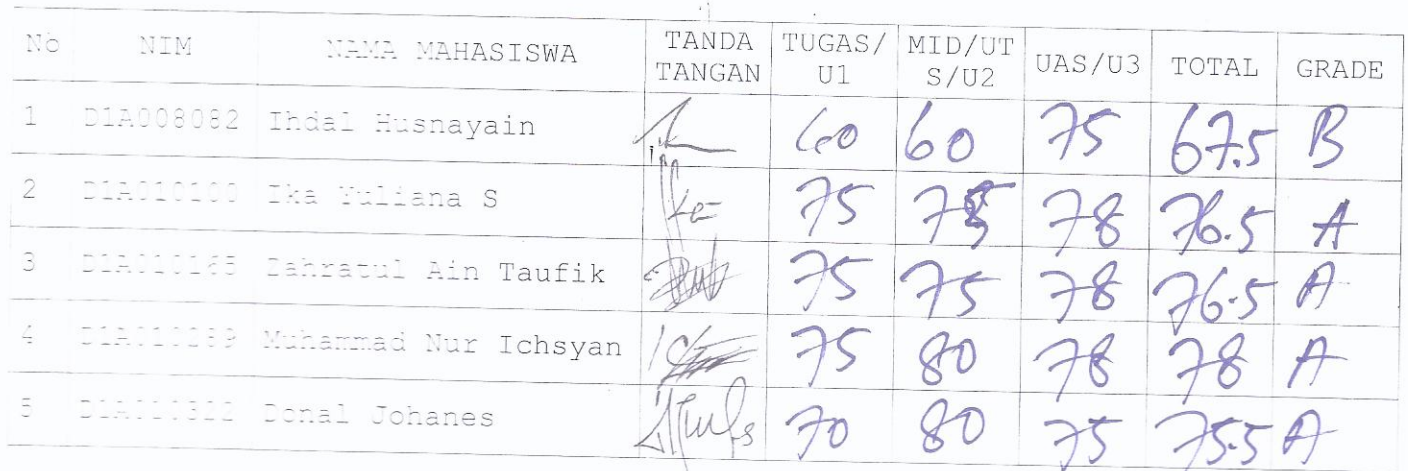 No NIM NAMA MAHASISWA TANDA TANGAN TUGAS/U1 MID/UTS/U2 UAS/U3 TOTAL GRADE
1 D1A008082 Ihdal Husnayain 60 60 75 67.5 B
2 D1A010100 Ika Yuliana S 75 75 78 76.5 A
3 D1A010165 Zahratul Ain Taufik 75 75 78 76.5 A
4 Muhammad Nur Ichsyan 75 80 78 78 A
5 Donal Johanes 70 80 75 75.5 A